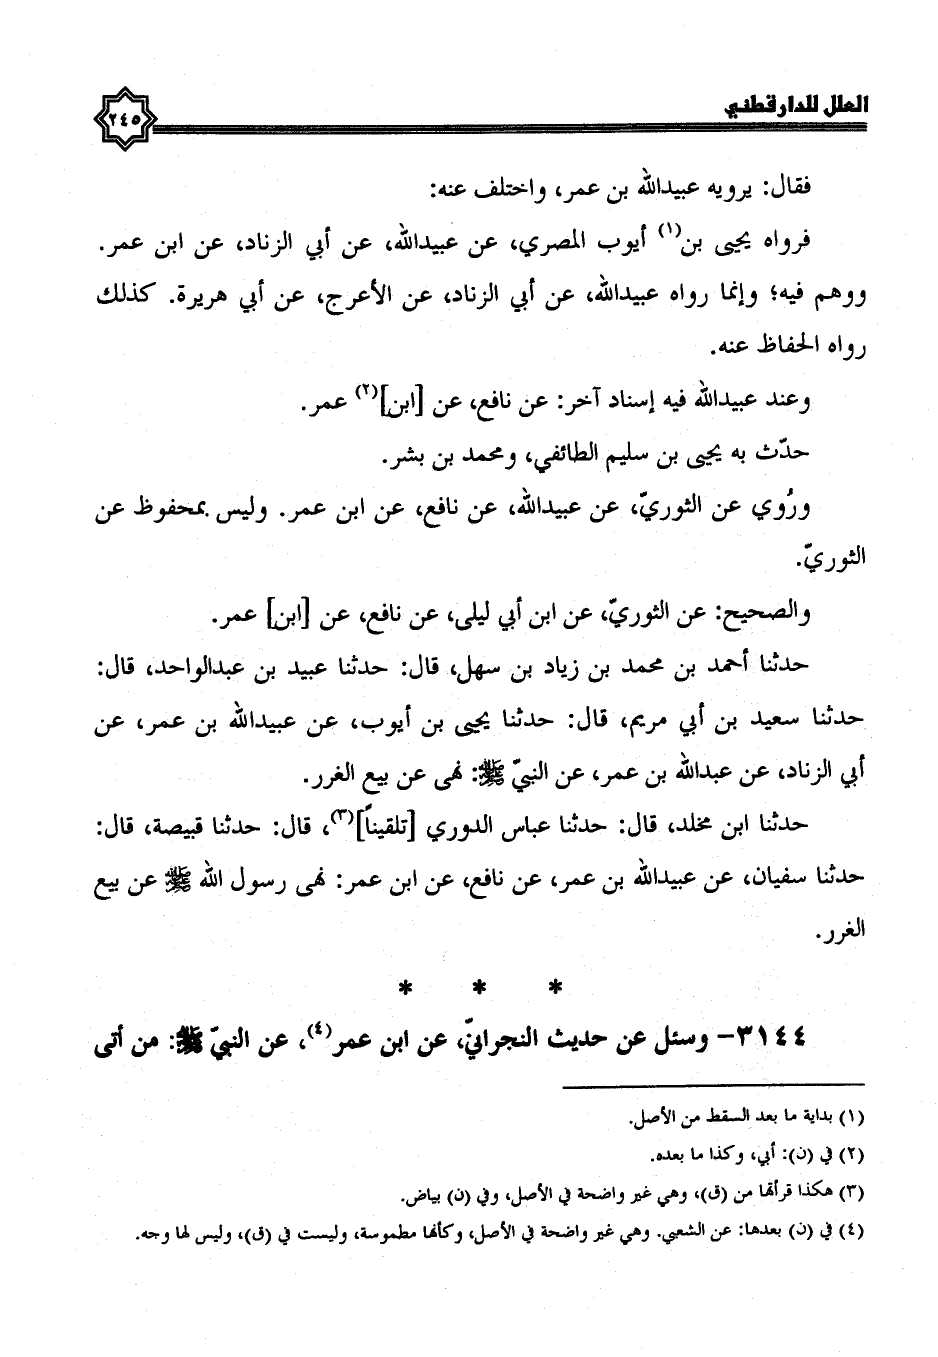 العلل للدارقطني
٢٤٥
فقال: يرويه عبيدالله بن عمر، واختلف عنه:
فرواه يحيى بن(١) أيوب المصري، عن عبيدالله، عن أبي الزناد، عن ابن عمر.
ووهم فيه؛ وإنما رواه عبيدالله، عن أبي الزناد، عن الأعرج، عن أبي هريرة. كذلك
رواه الحفاظ عنه.
وعند عبيدالله فيه إسناد آخر: عن نافع، عن [ابن](٢) عمر.
حدّث به يحيى بن سليم الطائفي، ومحمد بن بشر.
ورُوي عن الثوريّ، عن عبيدالله، عن نافع، عن ابن عمر. وليس بمحفوظ عن
الثوريّ.
والصحيح: عن الثوريّ، عن ابن أبي ليلى، عن نافع، عن [ابن] عمر.
حدثنا أحمد بن محمد بن زياد بن سهل، قال: حدثنا عبيد بن عبدالواحد، قال:
حدثنا سعيد بن أبي مريم، قال: حدثنا يحيى بن أيوب، عن عبيدالله بن عمر، عن
أبي الزناد، عن عبدالله بن عمر، عن النبيّ ﷺ: نهى عن بيع الغرر.
حدثنا ابن مخلد، قال: حدثنا عباس الدوري [تلقيناً](٣)، قال: حدثنا قبيصة، قال:
حدثنا سفيان، عن عبيدالله بن عمر، عن نافع، عن ابن عمر: نهى رسول الله ﷺ عن بيع
الغرر.
* * *
٣١٤٤- وسئل عن حديث النجرانيّ، عن ابن عمر(٤)، عن النبيّ ﷺ: من أتى
(١) بداية ما بعد السقط من الأصل.
(٢) في (ن): أبي، وكذا ما بعده.
(٣) هكذا قرأتها من (ق)، وهي غير واضحة في الأصل، وفي (ن) بياض.
(٤) في (ن) بعدها: عن الشعبي. وهي غير واضحة في الأصل، وكأنها مطموسة، وليست في (ق)، وليس لها وجه.